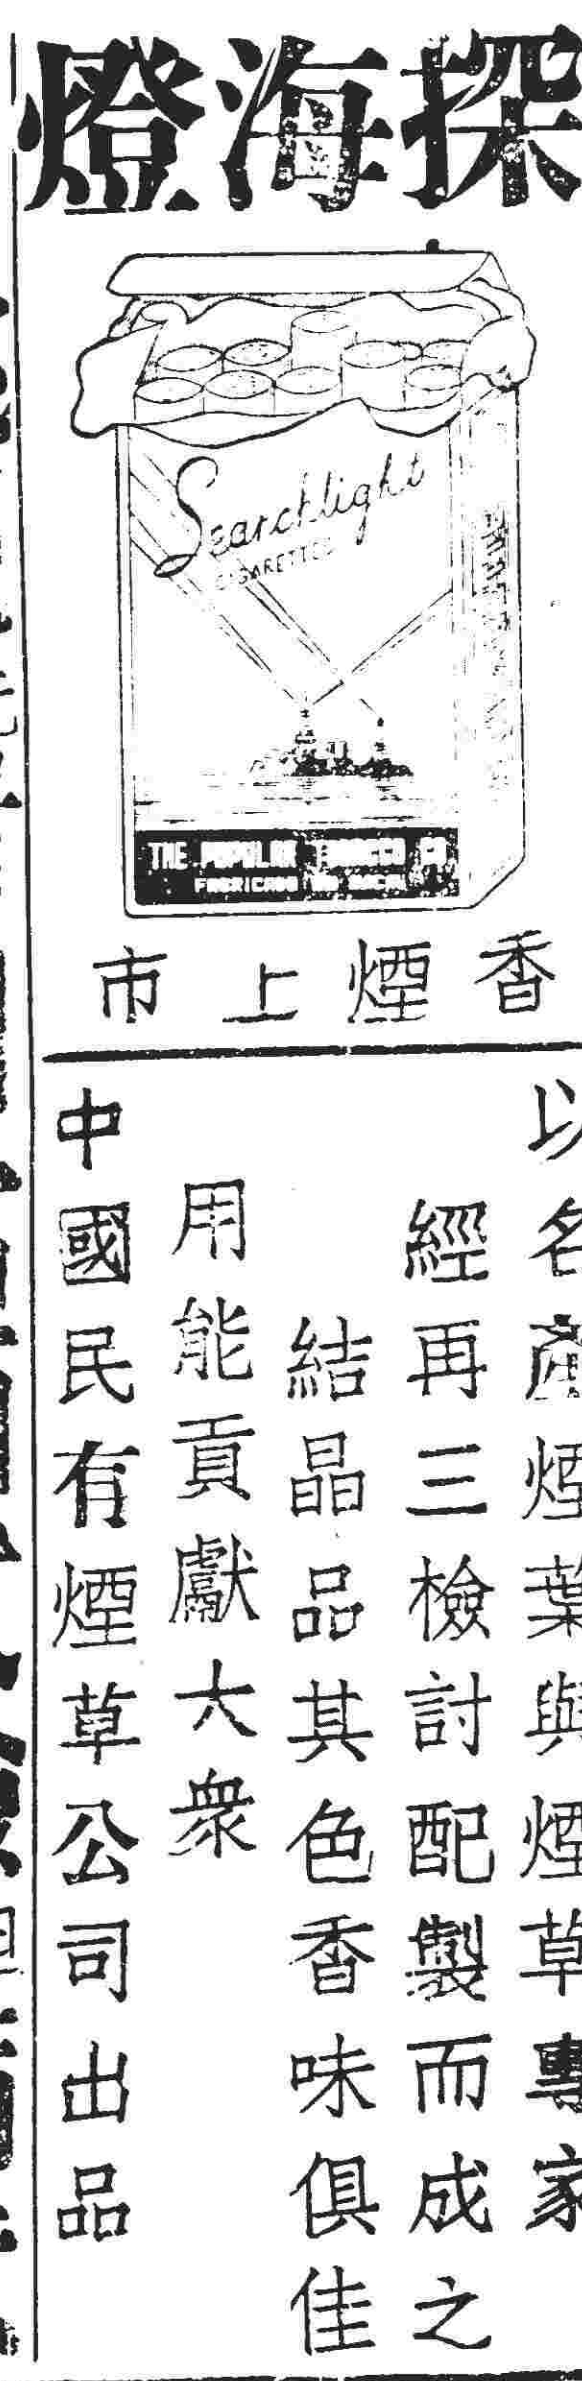 探海燈
Searchlight
CIGARETTES
THE POPULAR TOBACCO CO
FABRICADO EM MACAU
香煙上市
以名產煙葉與煙草專家
經再三檢討配製而成之
結晶品其色香味俱佳
用能貢獻大衆
中國民有煙草公司出品